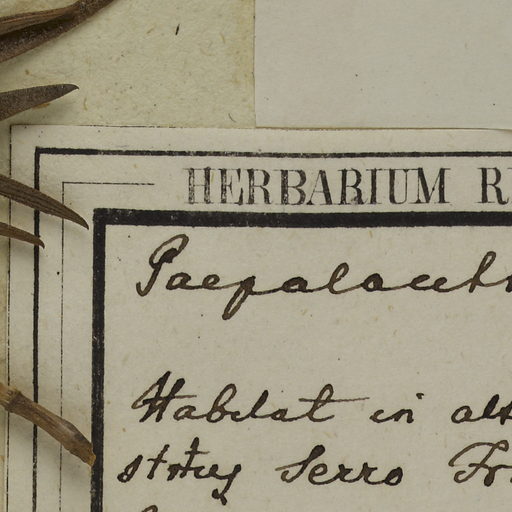 HERBARIUM R
Paepalacnth
Habitat in alt
Serro Fr